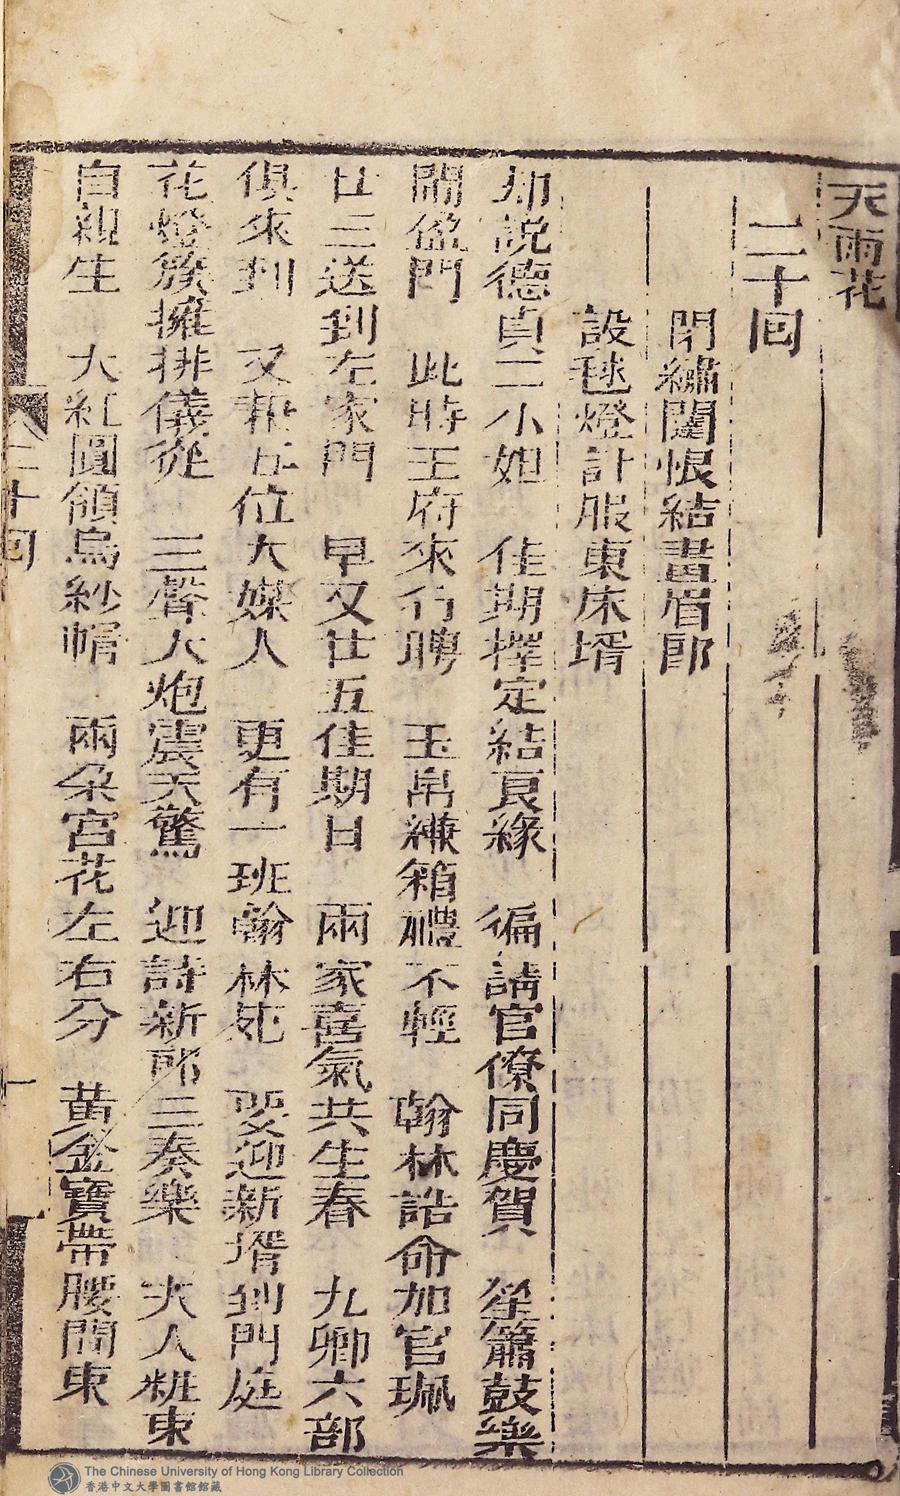 天雨花
二十回
閉繡闥恨結畫眉郎
設毬燈計服東床壻
却說德貞二小姐　佳期擇定結良緣　徧請官僚同慶賀　笙簫鼓樂
鬧盈門　此時王府來行聘　玉帛縑箱禮不輕　翰林誥命加官珮
廿三送到左家門　早又廿五佳期日　兩家喜氣共生春　九卿六部
俱來到　又報五位大媒人　更有一班翰林苑　要迎新壻到門庭
花燈簇擁排儀從　三聲大炮震天驚　迎請新郎三奏樂　夫人粧束
自親生　大紅圓領烏紗帽　兩朵宮花左右分　黃金寶帶腰間束
二十回
The Chinese University of Hong Kong Library Collection
香港中文大學圖書館館藏